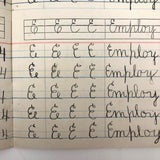 E E E E Employ
E E E E Employ
4 E E E E Employ
E E E E Employ
E E E E Employ
4 E E E E Employ